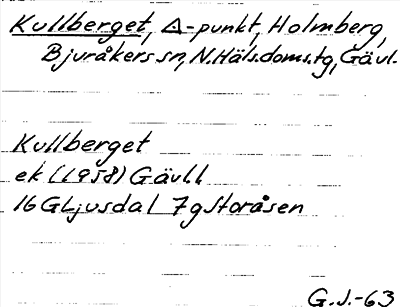 Kullberget, △-punkt, Holmberg,
Bjuråkers sn, N.Häls.doms.tg, Gävl.
Kullberget
ek (1958) Gävl.l
16G Ljusdal 7g Storåsen
G.J.-63